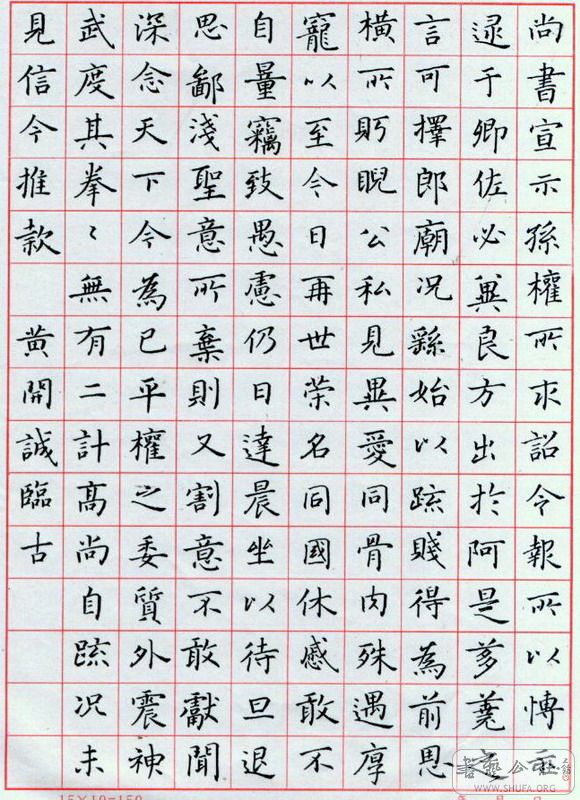 尚書宣示孫權所求詔令報所以愽示
逯于卿佐必冀良方出於阿是芻蕘之
言可擇郎廟況繇始以疏賤得為前思
橫所眄睨公私見異愛同骨肉殊遇厚
寵以至今日再世榮名同國休慼敢不
自量竊致愚慮仍日達晨坐以待旦退
思鄙淺聖意所棄則又割意不敢獻聞
深念天下今為已平權之委質外震神
武度其拳〻無有二計高尚自疏況未
見信今推款 黄開誠臨古
15×10=150
書藝公社
WWW.SHUFA.ORG